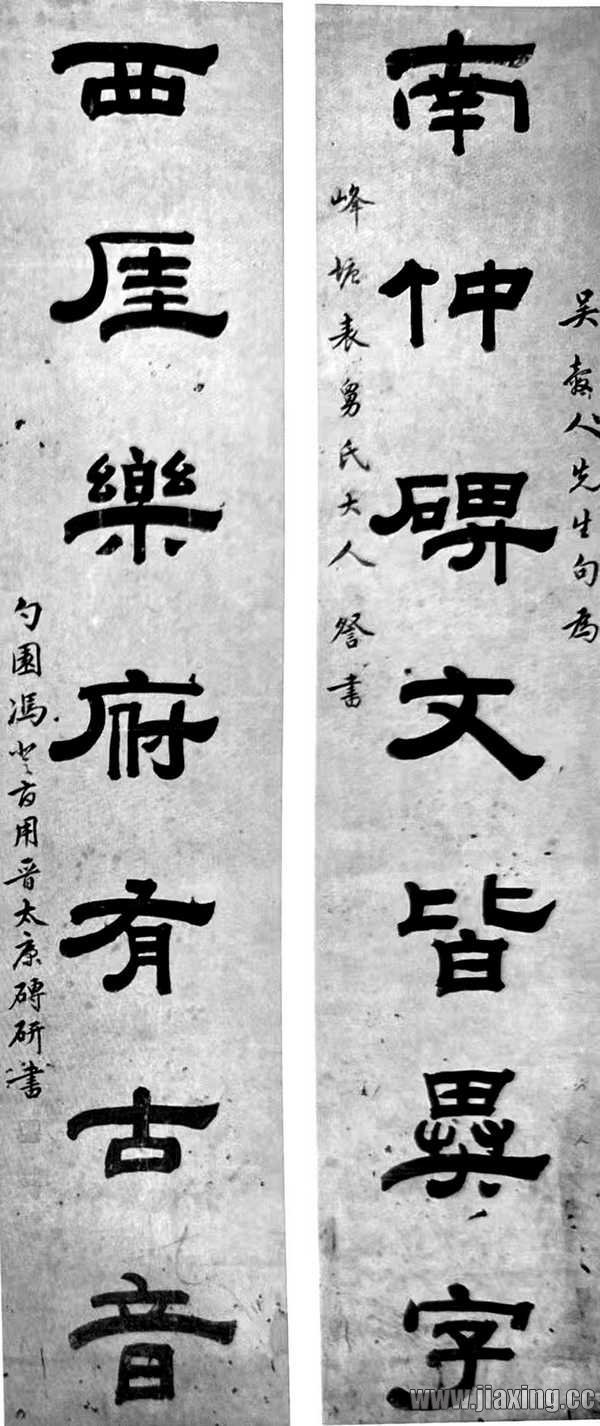 吴穀人先生句為
南仲碑文皆異字
峰垞表舅氏大人詧書
西厓樂府有古音
勺園馮登府用晉太康磚研書
www.jiaxing.cc